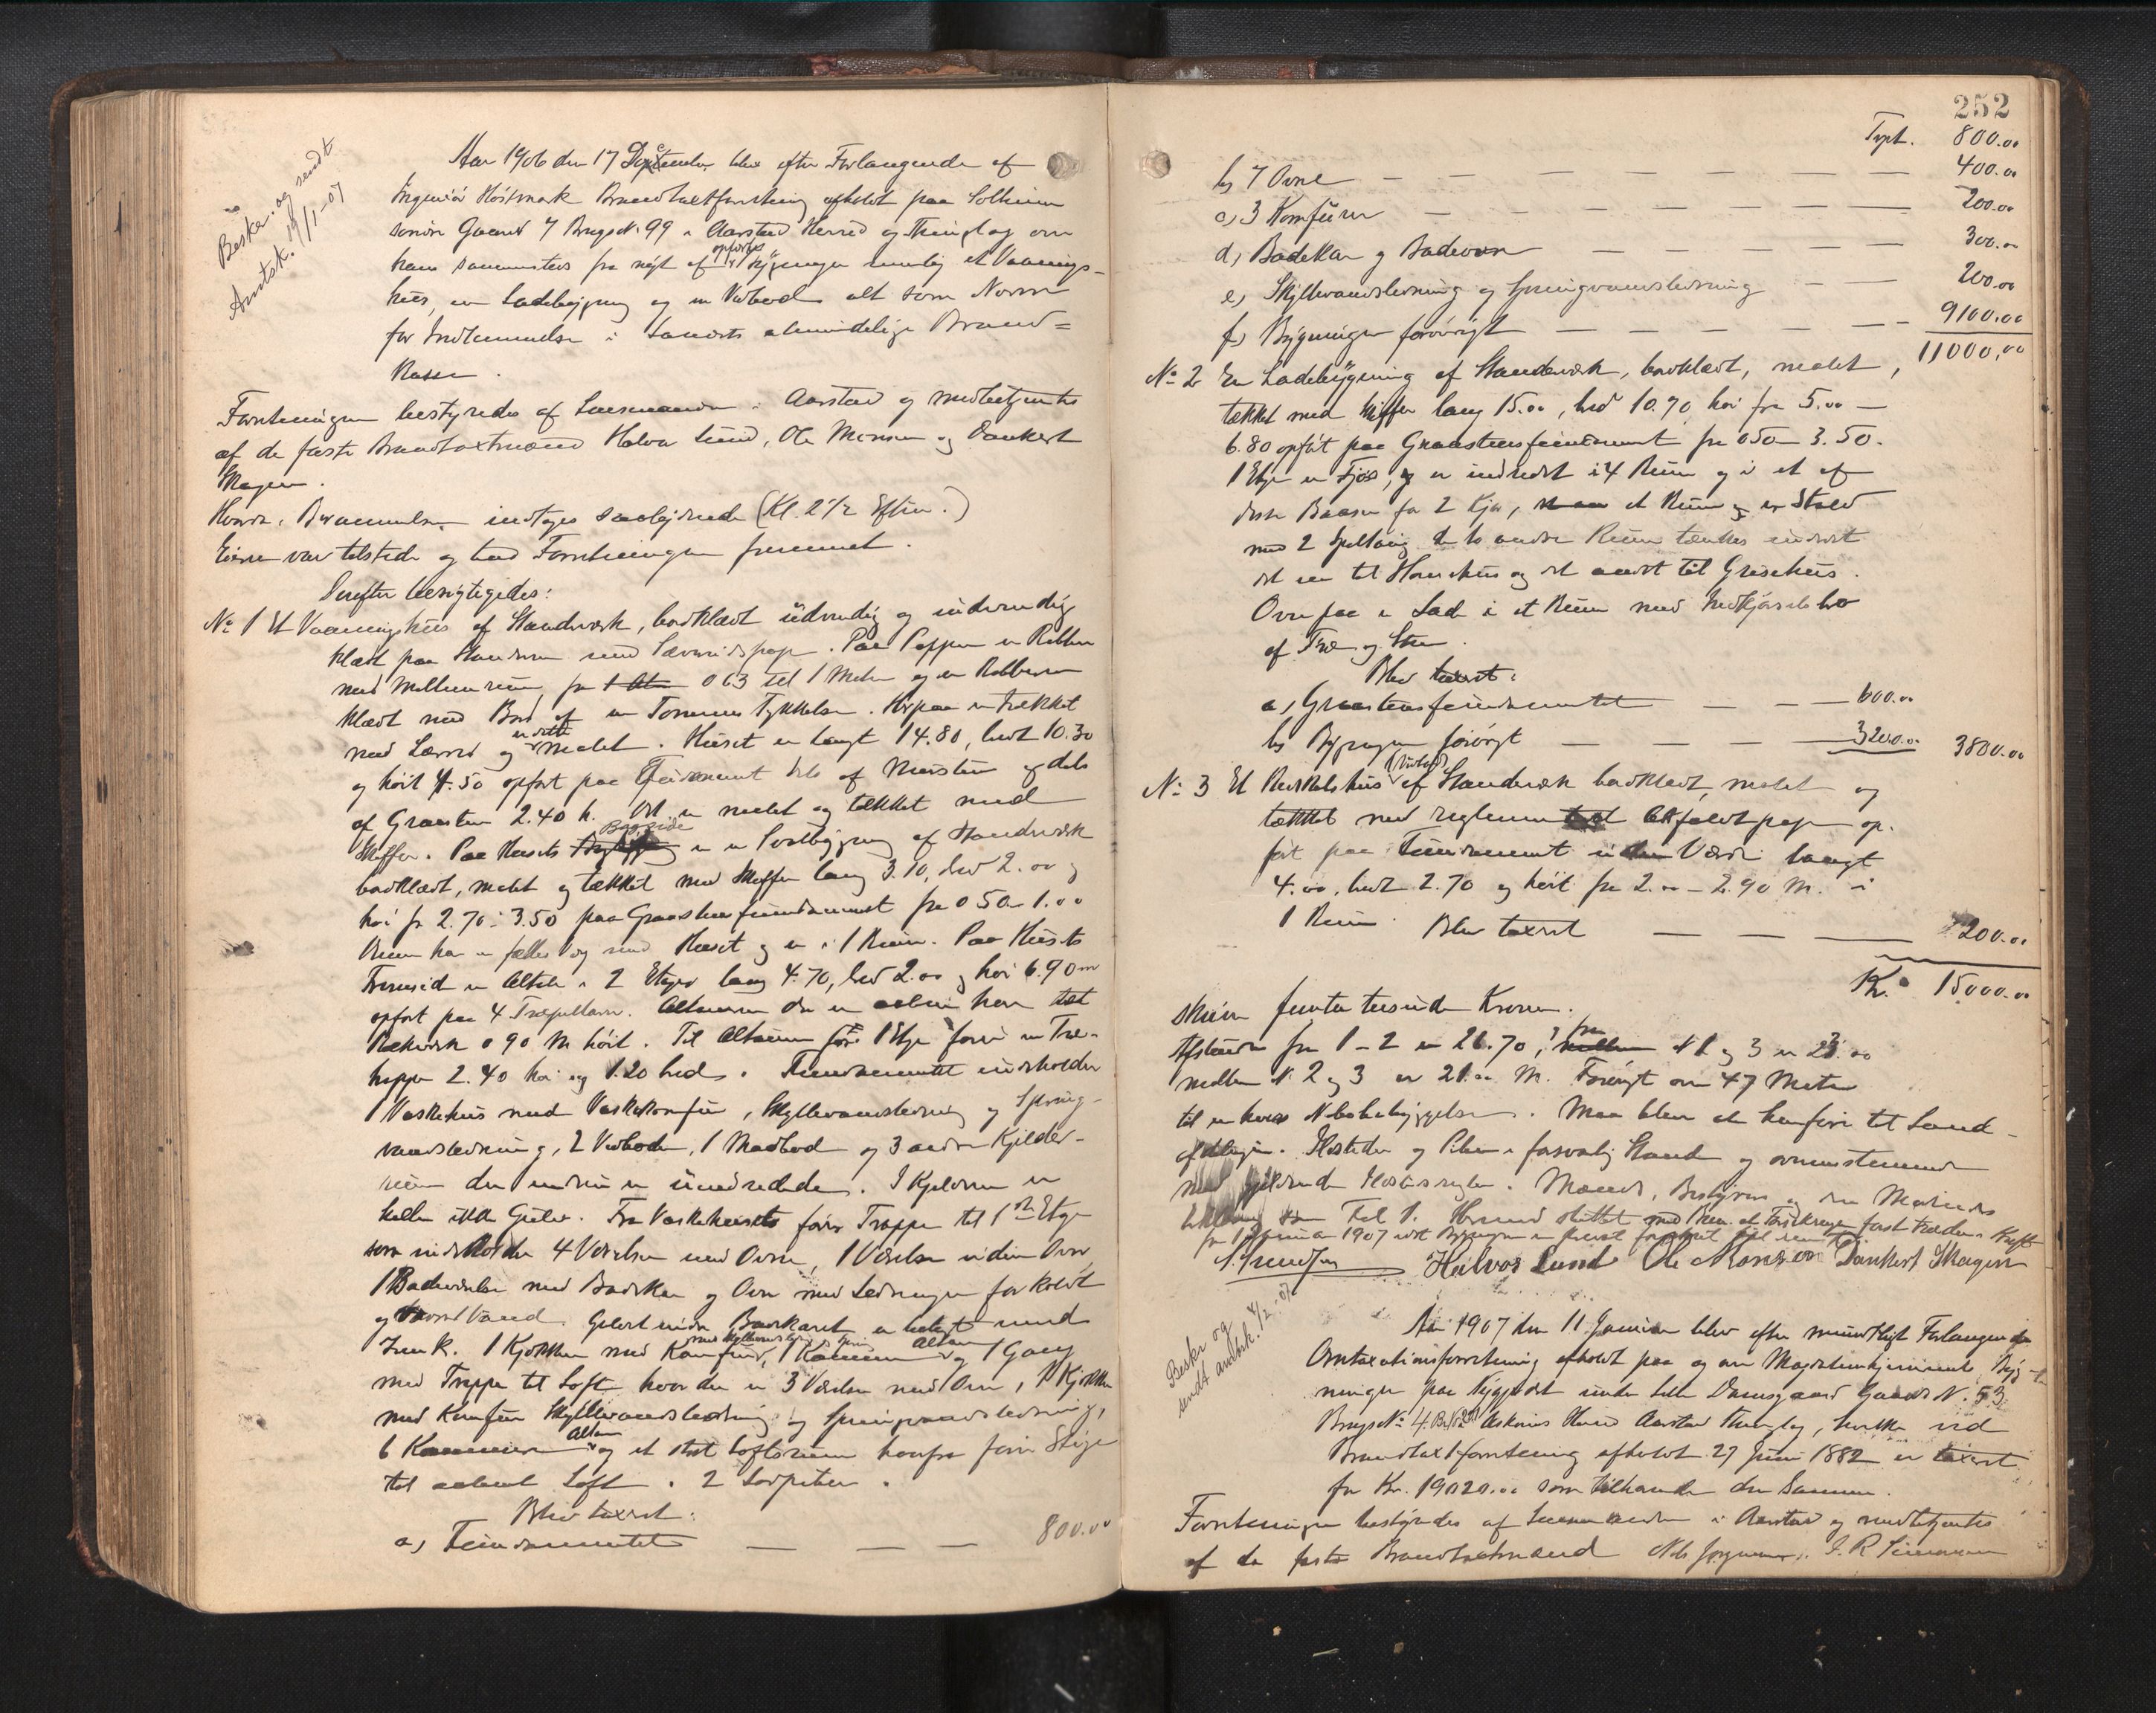 Beskr. og sendt
Amtsk. 19/1-07
Aar 1906 den 17 December blev efter Forlangende af
Ingeniør Høstmark Brandtaxtforretning afholdt paa Solheim
søndre Gaards N 7 Brugs N. 99 i Aarstad Herred og Thinglag over
hans sammesteds fra nyt af opførte Bygninger nemlig et Vaanings-
hus, en Ladebygning og en Vedbod alt som Norm
for Indlemmelse i Landets almindelige Brand-
kasse.
Forretningen bestyredes af Lensmanden i Aarstad og medbetjentes
af de faste Brandtaxtmænd Halvor Lund, Ole Monsen og Dankert
Skagen.
Hvorda Berammelsen indtages saalydende (Kl. 2 1/2 Efterm.)
Eieren var tilstede og blev Forretningen fremmet.
Derefter besigtigedes:
No 1 Et Vaaningshus af Standværk, bordklædt udvendig og indvendig
klædt paa Standeren med Pap. Paa Pappen er Ribber
med Mellemrum fra 0 63 til 1 Meter og er Ribberne
klædt med Bord af en Tommes Tykkelse. Herpaa er trækket
med Lærred og er dette malet. Huset er langt 14.80, bredt 10.30
og høit 4.50 opført paa Fundament dels af Mursten og dels
af Graasten 2.40 h. Det er malet og tækket med
Skiffer. Paa Husets Bagside er en Portbygning af Standværk
bordklædt, malet og tækket med Skiffer lang 3.10, bred 2.00 og
høi fr 2.70 - 3.50 paa Graastensfundament fra 0 50 - 1.00
Rum har er fælles Væg med Huset og er i 1 Rum. Paa Husets
Fremside er Altan i 2 Etager lang 4.70, bred 2.00 og høi 6.90 m
opført paa 4 Træpillarer. Altanen der er aaben har tæt
Rækværk 0 90 M høit. Til Altanen før 1 Etge fører en Træ-
trappe 2.40 høi og 1.20 bred. Fundamentet indeholder
1 Vaskehus med Vaskekomfur, Skyllevandsledning og Spring-
vandsledning, 2 Vedboder, 1 Madbod og 3 andre Kjelder-
rum der endnu er uindredede. I Kjelderen er
heller ikke Gulv. Fra Vaskehuset fører Trappe til 1ste Etage
som indeholder 4 Værelser med Ovne, 1 Værelse uden Ovn
1 Badeværelse med Badekar og Ovn med Ledninger for koldt
og varmt Vand. Gulvet under Badekaret er belagt med
Zink. 1 Kjøkken med Komfur, med Skyllevandsledn. 1 Kammer Altan og 1 Gang
med Trappe til Loft hvor der er 3 Værelser med Ovn, 1 Kjøkken
med Komfur Skyllevandsledning og Springvandsledning,
6 Kammere Altan og et stort Loftsrum hvorfra fører Stige
til aabent Loft. 2 Sodpiber.
Blev taxeret:
a) Fundamentet — — — 800.00
252
Trpt. 800.00
b) 7 Ovne — — — 400.00
c) 3 Komfurer — — — 200.00
d) Badekar og Badeovn — — — 300.00
e) Skyllevandsledning og Springvandsledning — — 200.00
f) Bygningen forøvrigt — — — 9100.00
11000,00
No 2 En Ladebygning af Standværk, bordklædt, malet,
tækket med Skiffer lang 15.00, bred 10.70, høi fra 5.00 —
6.80 opført paa Graastensfundament fra 0 50 - 3.50.
1 Etge er Fjøs, og er indredet i 4 Rum og i et af
disse Baaser for 2 Kjør, et Rum og er Stald
med 2 Spiltoug de to andre Rum tænkes indredet
det ene til Hønsehus og det andet til Grisehus.
Ovenpaa er Lade i et Rum med Indkjørselsbro
af Træ og Sten.
Blev taxeret:
a) Graastensfundamentet — — — 600.00
b) Bygningen forøvrigt — — — 3200.00 3800.00
No 3 Et Redskabshus (Vedbod) af Standværk bordklædt, malet og
tækket med reglementeret Asfaltpap op-
ført paa Fundament uden Værdi langt
4.00, bredt 2.70 og høit fra 2.00 - 2.90 M. i
1 Rum. Blev taxeret — — — 200.00
Kr. 15000.00
skriver femten tusinde Kroner.
Afstanden fra 1 - 2 er 26.70, fra N 1 og 3 er 23.00
mellem N. 2 og 3 er 21.00 M. Forøvrigt over 47 Meter
til en hver Nabobebyggelse. Maa blive at henføre til Land-
afdelingen. Ildsteder og Piber i forsvarlig Stand og overensstemmende
med gjældende Ildstedsregler. Mænds, Bestyrers og
Erklæring som Fol 1. Hermed sluttet med Bem. at Forsikringen først træder i Kraft
fr 1 Januar 1907
Halvor Lund Ole Monsen Dankert Skagen
Beskr og
sendt amtsk. 4/2-07
Aar 1907 den 11 Januar blev efter mundtligt Forlangende
Omtaxationsforretning afholdt paa og over Byg-
ninger paa Nygaard under Lille Damsgaard Gaards N. 53
Brugs No 4, Askøens Herred Aarstad Thinglag, hvilke ved
Brandtaxtforretning afholdt 27 Juni 1882 er taxeret
for Kr. 19020.00 som tilhørende den Samme.
Forretningen bestyredes af Lensmanden i Aarstad og medbetjentes
af de faste Brandtaxtmænd Nils Jørgensen, J. R.